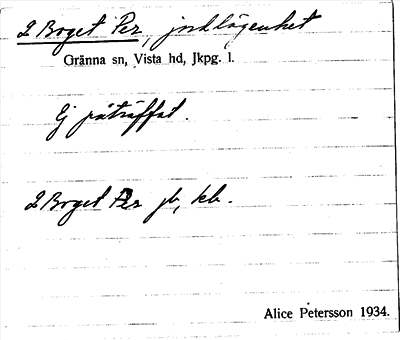 2 Boget Per, jordlägenhet
Gränna sn, Vista hd, Jkpg. l.
Ej påträffat.
2 Boget Per jb, kb.
Alice Petersson 1934.